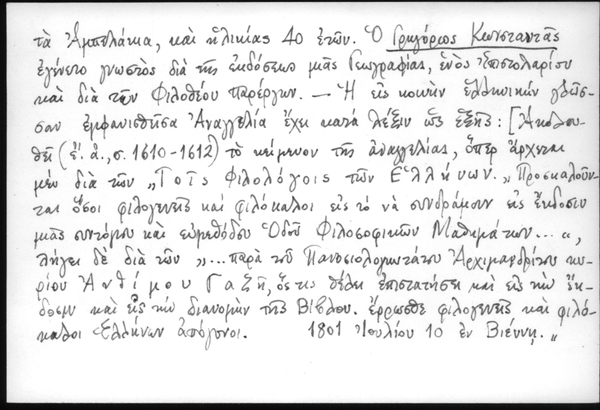 τὰ Ἀμπελάκια, καὶ ἡλικίας 40 ἐτῶν. Ὁ Γρηγόριος Κωνσταντᾶς
ἐγένετο γνωστὸς διὰ τῆς ἐκδόσεως μιᾶς Γεωγραφίας, ἑνὸς Ἐπιστολαρίου
καὶ διὰ τῶν Φιλοθέου παρέργων. — Ἡ εἰς κοινὴν ἑλληνικὴν γλῶσ-
σαν ἐμφανισθεῖσα Ἀναγγελία ἔχει κατὰ λέξιν ὡς ἑξῆς: [Ἀκολου-
θεῖ (ἔ. ἀ., σ. 1610-1612) τὸ κείμενον τῆς ἀναγγελίας, ὅπερ ἄρχεται
μὲν διὰ τῶν „Τοῖς Φιλολόγοις τῶν Ἑλλήνων. „Προσκαλοῦν-
ται ὅσοι φιλογενεῖς καὶ φιλόκαλοι εἰς τὸ νὰ συνδράμουν εἰς ἔκδοσιν
μιᾶς συντόμου καὶ εὐμεθόδου Ὁδοῦ Φιλοσοφικῶν Μαθημάτων...“,
λήγει δὲ διὰ τῶν „... παρὰ τοῦ Πανοσιολογιωτάτου Ἀρχιμανδρίτου κυ-
ρίου Ἀνθίμου Γαζῆ, ὅστις θέλει ἐπιστατήσει καὶ εἰς τὴν ἔκ-
δοσιν καὶ εἰς τὴν διανομὴν τῆς Βίβλου. ἔρρωσθε φιλογενεῖς καὶ φιλό-
καλοι Ἑλλήνων ἀπόγονοι. 1801 Ἰουλίου 10 ἐν Βιέννῃ.“